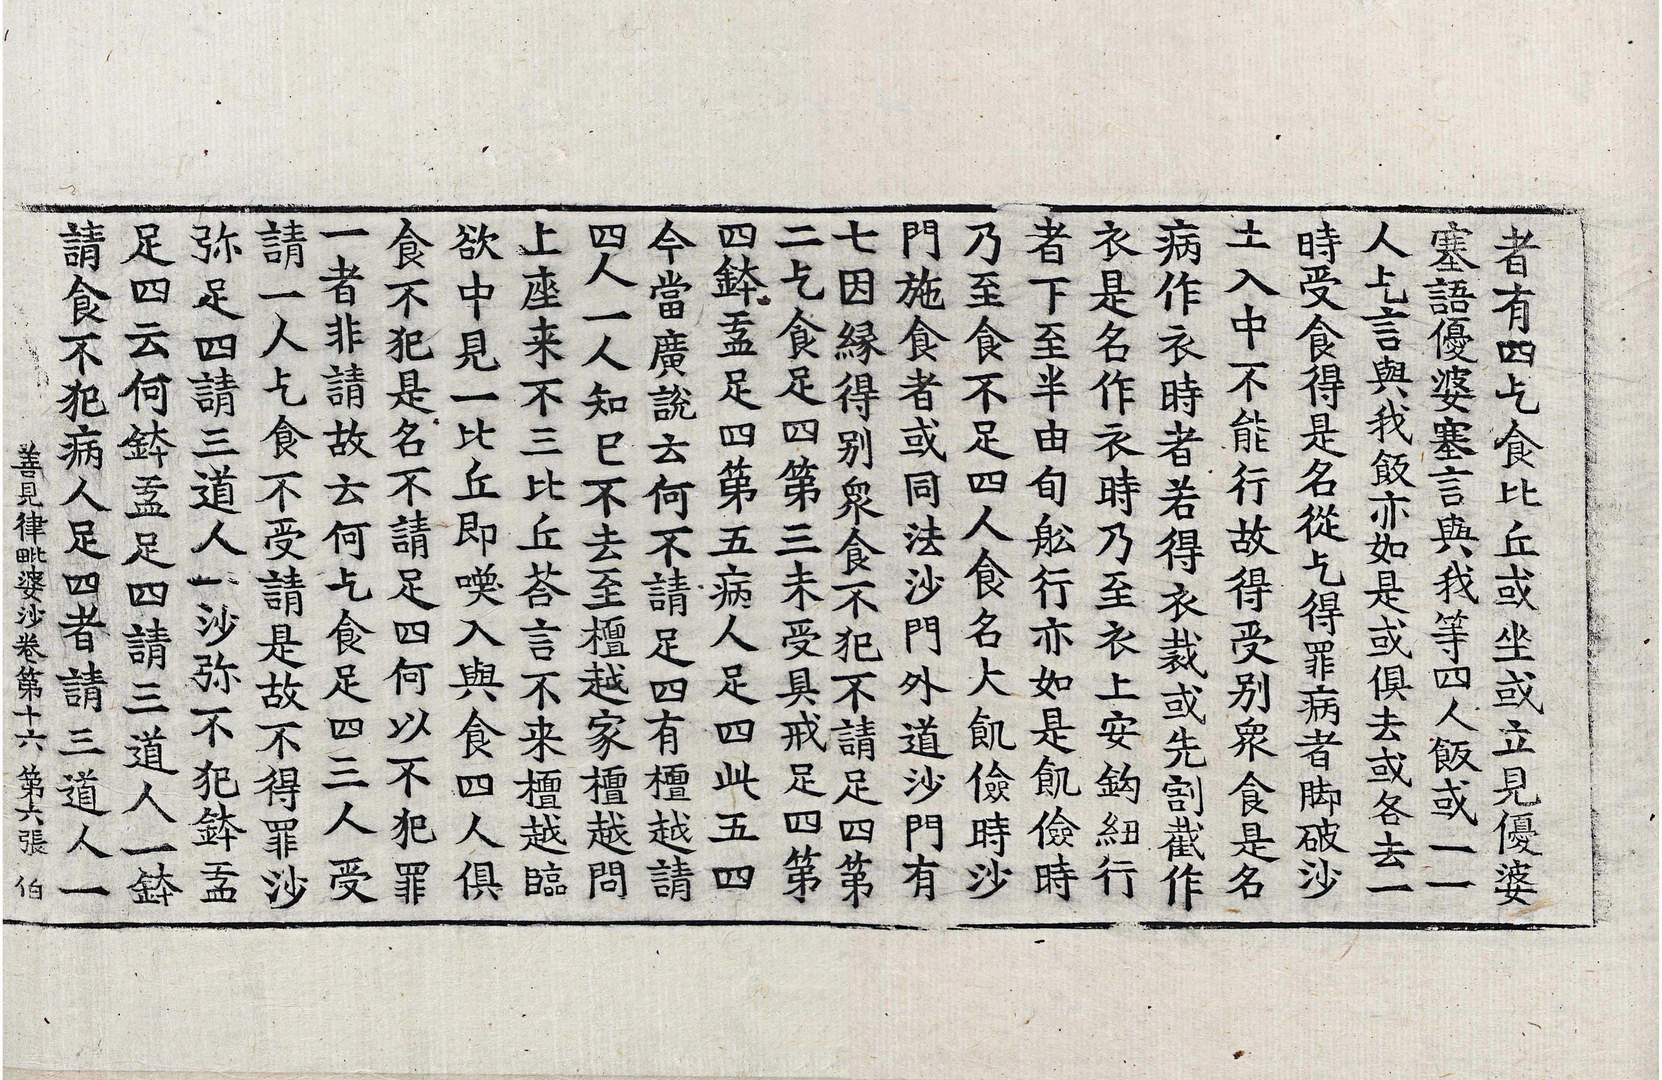 者有四乞食比丘或坐或立見優婆
塞語優婆塞言與我等四人飯或一一
人乞言與我飯亦如是或俱去或各去一
時受食得是名從乞得罪病者脚破沙
土入中不能行故得受別衆食是名
病作衣時者若得衣裁或先割截作
衣是名作衣時乃至衣上安鉤紐行
者下至半由旬舩行亦如是飢儉時
乃至食不足四人食名大飢儉時沙
門施食者或同法沙門外道沙門有
七因緣得別衆食不犯不請足四第
二乞食足四第三未受具戒足四第
四鉢盂足四第五病人足四此五四
今當廣說云何不請足四有檀越請
四人一人知已不去至檀越家檀越問
上座来不三比丘荅言不来檀越臨
欲中見一比丘即喚入與食四人俱
食不犯是名不請足四何以不犯罪
一者非請故云何乞食足四三人受
請一人乞食不受請是故不得罪沙
弥足四請三道人一沙弥不犯鉢盂
足四云何鉢盂足四請三道人一鉢
請食不犯病人足四者請三道人一
善見律毗婆沙卷第十六 第六張 伯